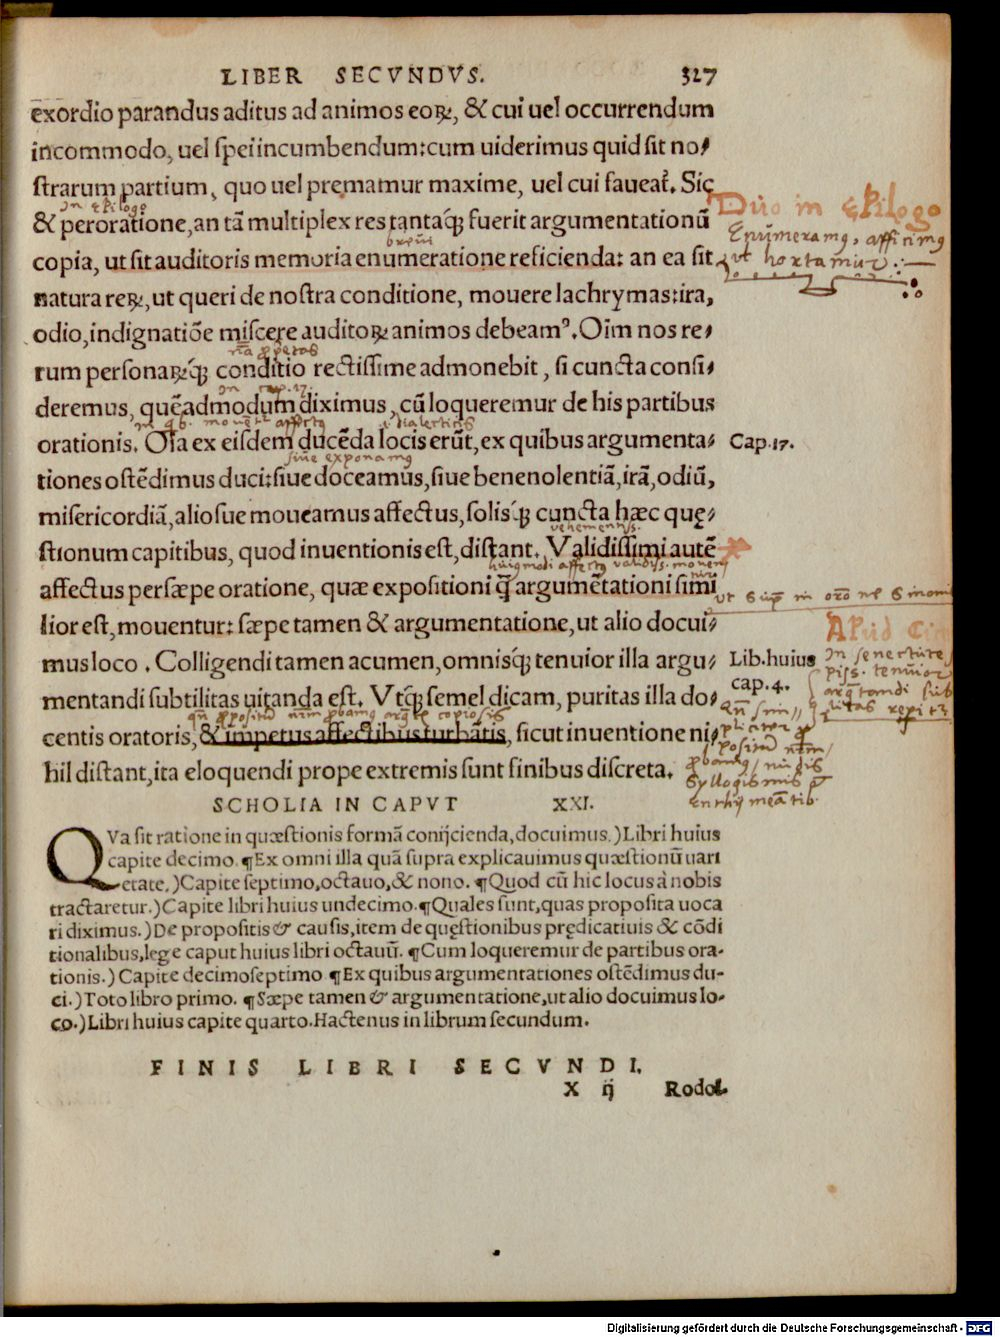 LIBER SECVNDVS. 327
exordio parandus aditus ad animos eoꝝ, & cui uel occurrendum
incommodo, uel spei incumbendum: cum uiderimus quid sit no⸗
strarum partium, quo uel premamur maxime, uel cui faueat᷑. Sic
in Epilogo
& peroratione, an tã multiplex res tantaq́ꝫ fuerit argumentationũ
Duo in Epilogo
Enumeramꝰ, afficimꝰ
copia, ut sit auditoris memoria enumeratione reficienda: an ea sit
ut hortamur
natura reꝝ, ut queri de nostra conditione, mouere lachrymas: ira,
odio, indignatiõe miscere auditoꝝ animos debeamꝰ. Oĩm nos re⸗
rum personaꝝq́ꝫ conditio rectissime admonebit, si cuncta consi⸗
in cap. 17.
deremus, quẽadmodum diximus, cũ loqueremur de his partibus
orationis. Oĩa ex eisdem ducẽda locis erũt, ex quibus argumenta⸗ Cap. 17.
siue exponamꝰ
tiones ostẽdimus duci: siue doceamus, siue beneuolentiã, irã, odiũ,
misericordiã, aliosue moueamus affectus, solis q́ꝫ cuncta hæc quę⸗
vehementiss.
stionum capitibus, quod inuentionis est, distant. Validissimi autẽ
affectus persæpe oratione, quæ expositioni q̃ argumẽtationi simi
lior est, mouentur: sæpe tamen & argumentatione, ut alio docui⸗
mus loco. Colligendi tamen acumen, omnisq́ꝫ tenuior illa argu⸗ Lib. huius
mentandi subtilitas uitanda est. Vtq́ꝫ semel dicam, puritas illa do⸗ cap. 4.
centis oratoris, & impetus affectibus turbatis, sicut inuentione ni⸗
hil distant, ita eloquendi prope extremis sunt finibus discreta.
SCHOLIA IN CAPVT XXI.
QVa sit ratione in quæstionis formã conijcienda, docuimus.) Libri huius
capite decimo. ¶Ex omni illa quã supra explicauimus quæstionũ uari
etate.) Capite septimo, octauo, & nono. ¶Quod cũ hic locus à nobis
tractaretur.) Capite libri huius undecimo. ¶Quales sunt, quas proposita uoca
ri diximus.) De propositis & causis, item de quęstionibus prędicatiuis & cõdi
tionalibus, lege caput huius libri octauũ. ¶Cum loqueremur de partibus ora-
tionis.) Capite decimoseptimo ¶Ex quibus argumentationes ostẽdimus du-
ci.) Toto libro primo. ¶Sæpe tamen & argumentatione, ut alio docuimus lo-
co.) Libri huius capite quarto. Hactenus in librum secundum.
FINIS LIBRI SECVNDI.
X ij Rodol.
Digitalisierung gefördert durch die Deutsche Forschungsgemeinschaft - DFG